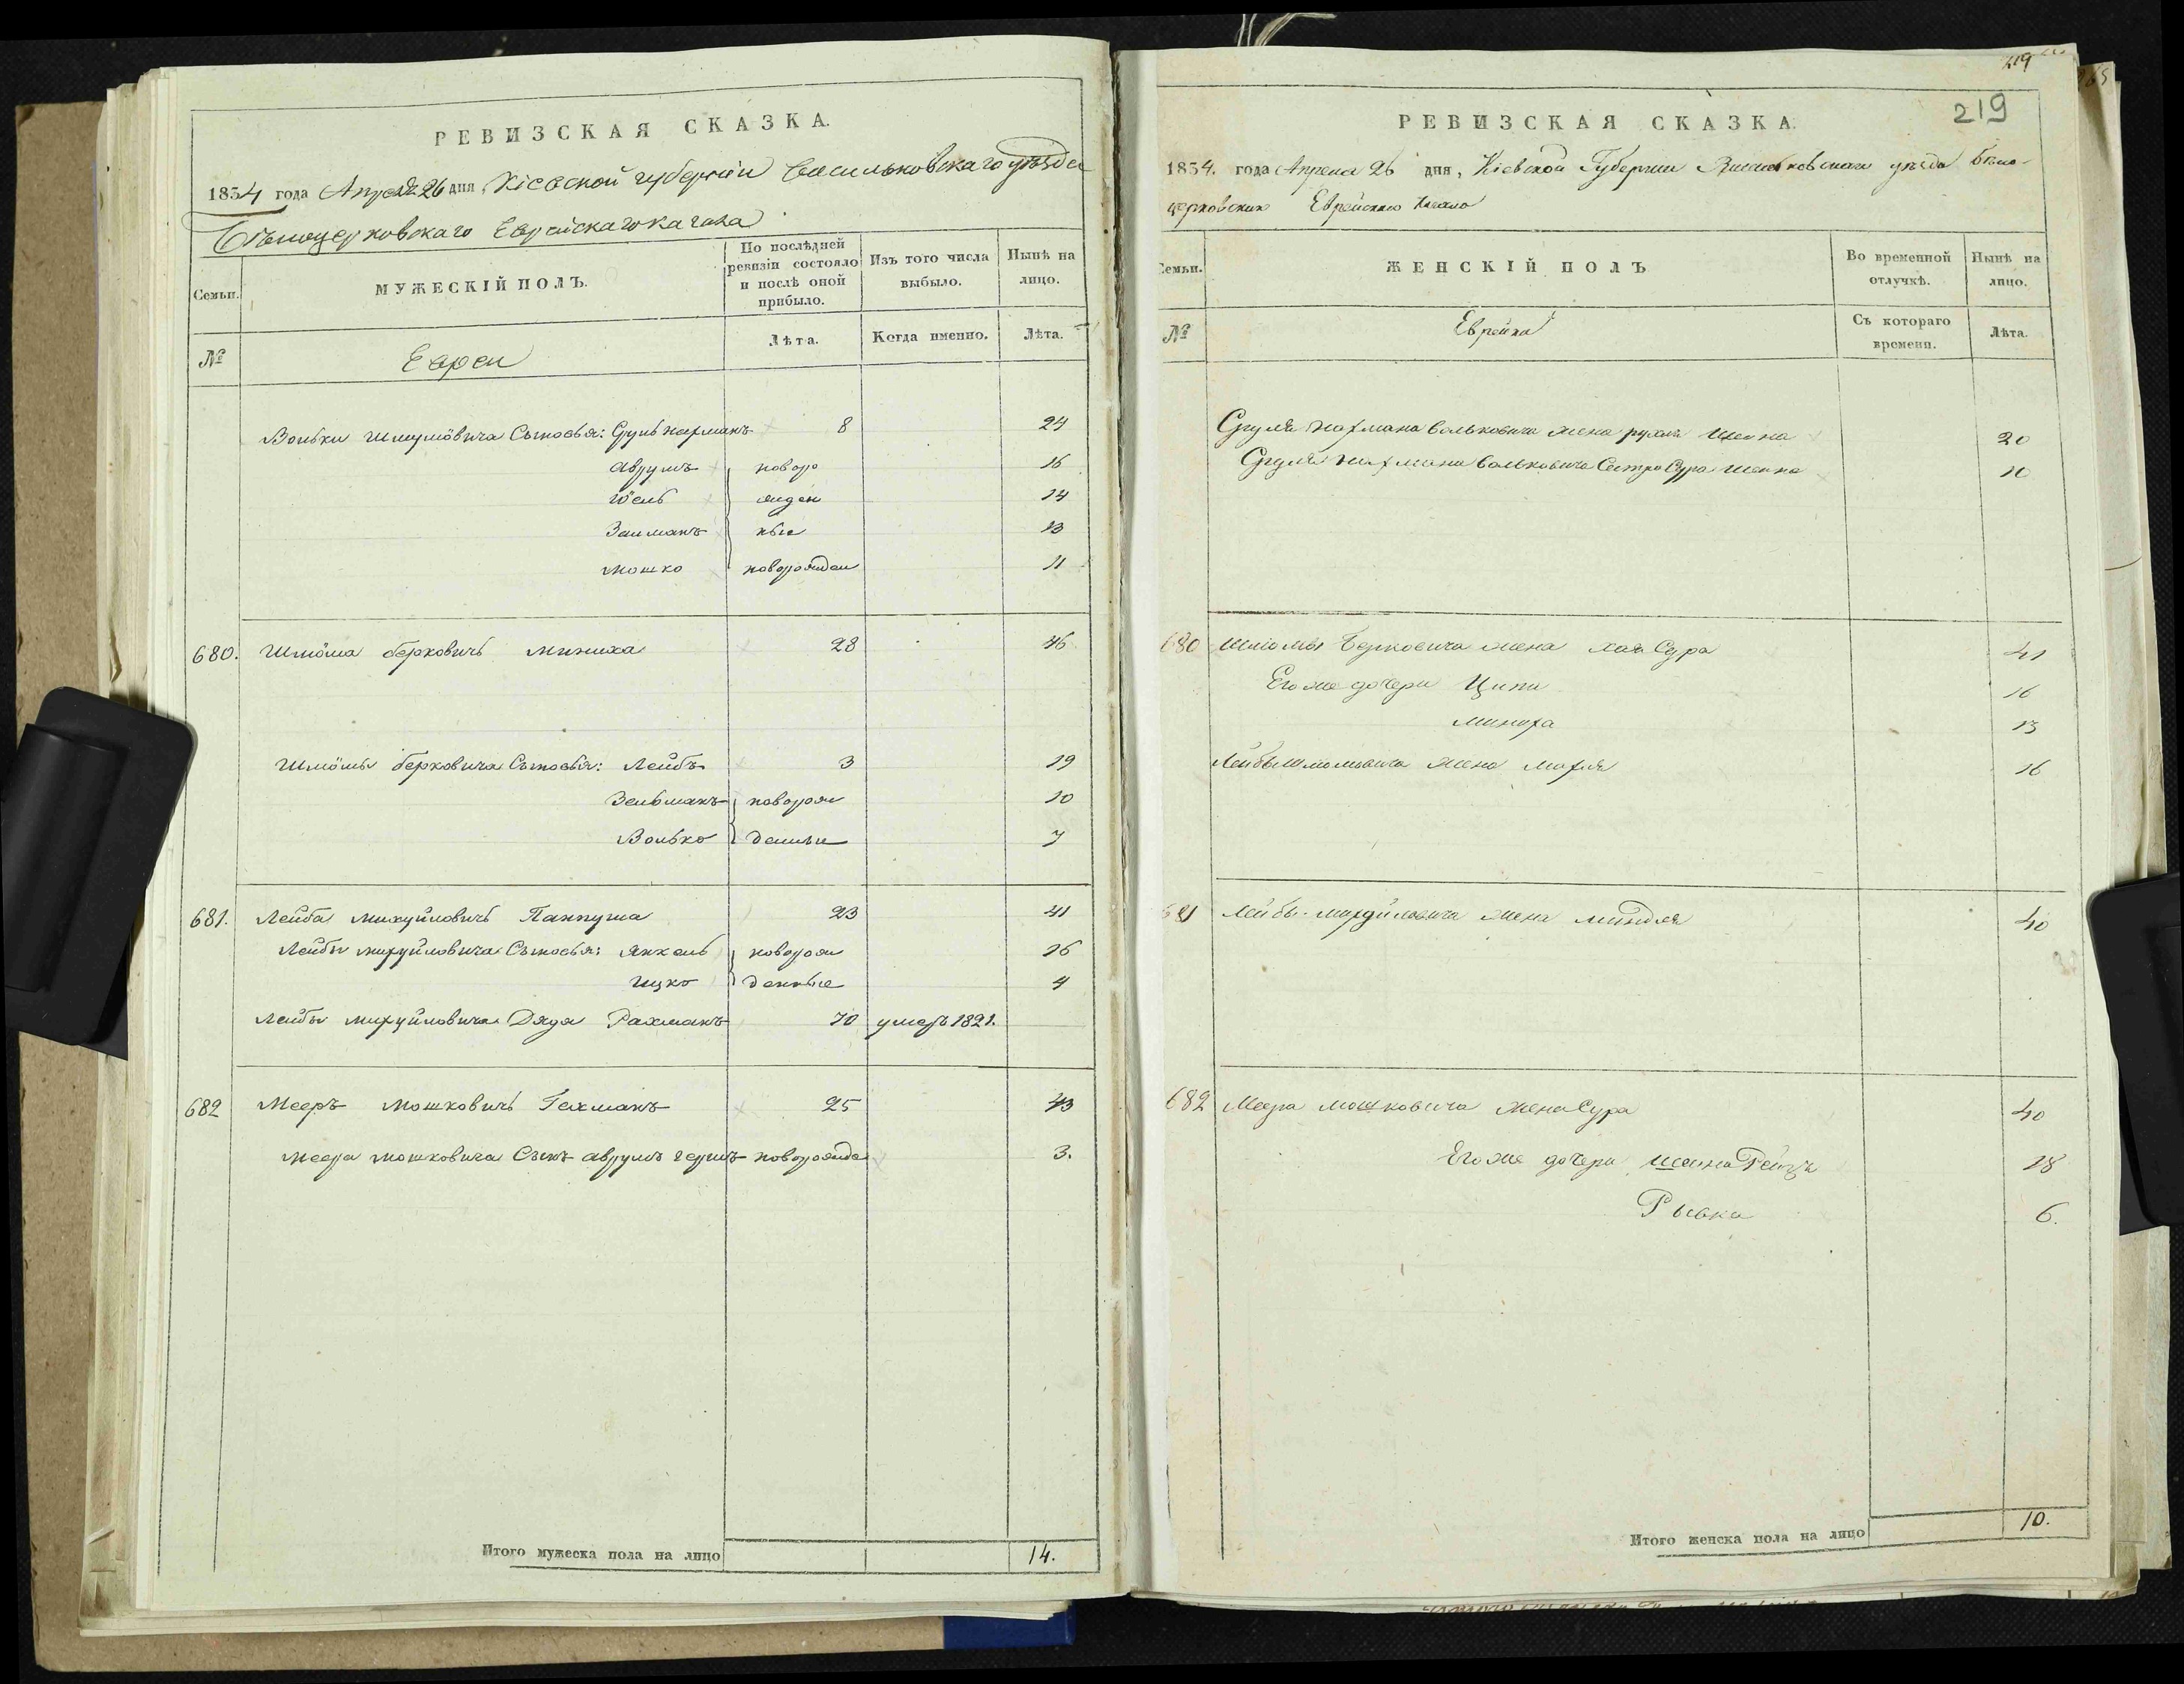 РЕВИЗСКАЯ СКАЗКА.
1834 года Апреля 26 дня Кіевской губерніи Васильковскаго уѣзда
Бѣлоцерковскаго Еврейскаго кагала
Семьи.
МУЖЕСКІЙ ПОЛЪ.
По послѣдней ревизіи состояло и послѣ оной прибыло.
Изъ того числа выбыло.
Нынѣ на лицо.
№
Евреи
Лѣта.
Когда именно.
Лѣта.
Вольки Шмулёвича Сыновья: Сруль Нахманъ 8 24
Аврумъ новоро 16
Іоель жден 14
Зальманъ ные 13
Мошко новорожден 11
680. Шлёма Берковичъ Миниха 28 46
Шлёмы Берковича Сыновья: Лейбъ 3 19
Зельманъ новорож 10
Волько денные 7
681. Лейба Михуйловичъ Паппуша 23 41
Лейбы Михуйловича Сыновья: Янкель новорож 16
Ицко денные 4
Лейбы Михуйловича Дядя Рахманъ 70 умеръ 1821.
682 Мееръ Мошковичъ Гехманъ 25 43
Меера Мошковича Сынъ Аврумъ Гершъ новорожде 3.
Итого мужеска пола на лицо 14.
219
219
РЕВИЗСКАЯ СКАЗКА.
1834. года Апреля 26 дня, Кіевской Губерніи Васильковскаго уѣзда Бѣло-
церковскаго Еврейскаго Кагала
Семьи.
ЖЕНСКІЙ ПОЛЪ
Во временной отлучкѣ.
Нынѣ на лицо.
№
Еврейки
Съ котораго времени.
Лѣта.
Сруля Нахмана Вольковича жена Рухля Шейна 20
Сруля Нахмана Вольковича Сестра Сура Шейна 10
680 Шлюмы Берковича жена Хая Сура 41
Его же дочери Ципи 16
Миниха 13
Лейбы Шлюмовича жена Махля 16
681 Лейбы Михуйловича жена Миндля 40
682 Меера Мошковича жена Сура 40
Его же дочери Шейна Рейзя 18
Рывка 6.
Итого женска пола на лицо 10.